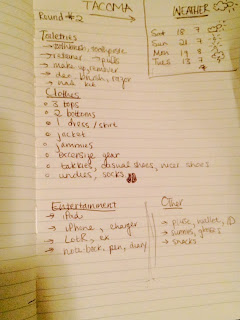 TACOMA
Round #2
WEATHER
Sat 18 7
Sun 21 7
Mon 19 8
Tues 13 7
Toiletries
→ toothbrush, toothpaste
→ retainer → pills
→ make up, remover
→ deo, brush, razor
→ nail
Clothes
○ 3 tops
○ 2 bottoms
○ 1 dress/skirt
○ jacket
○ jammies
○ excersize gear
○ takkies, casual shoes, nicer shoes
○ undies, socks
Entertainment
→ iPad
→ iPhone, charger
→ LotR,
→ note book, pen, diary
Other
→ purse, wallet, ID
→ sunnis, glasses
→ snacks